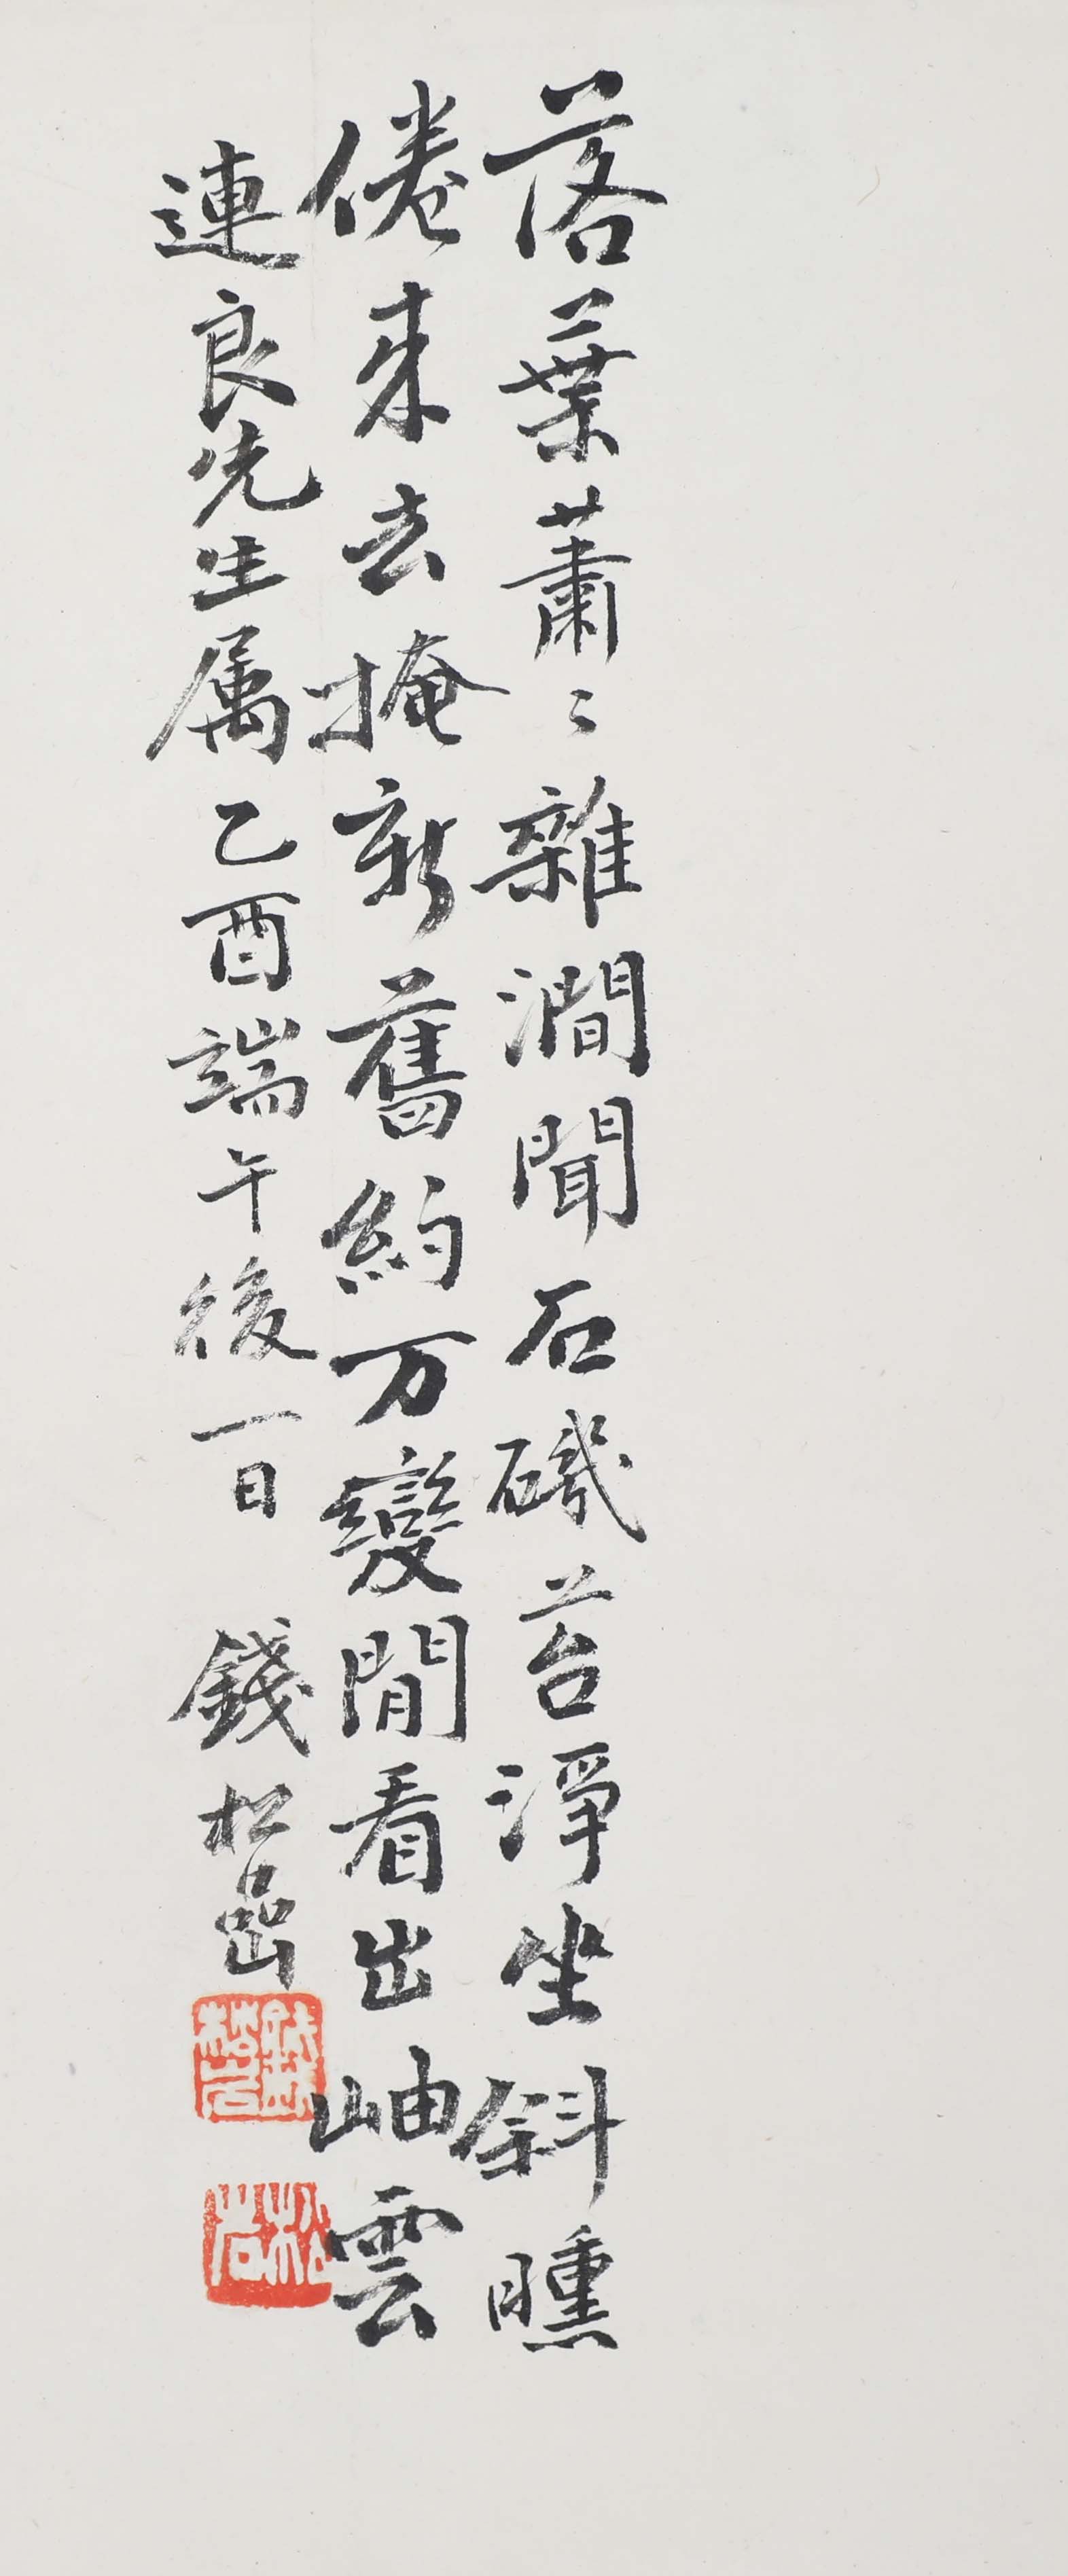 落葉蕭〻雜澗聞石磯苔淨坐斜曛
倦来去掩新舊約万變閒看出岫雲
連良先生属乙酉端午後一日 錢松嵒
錢松嵒
松嵒